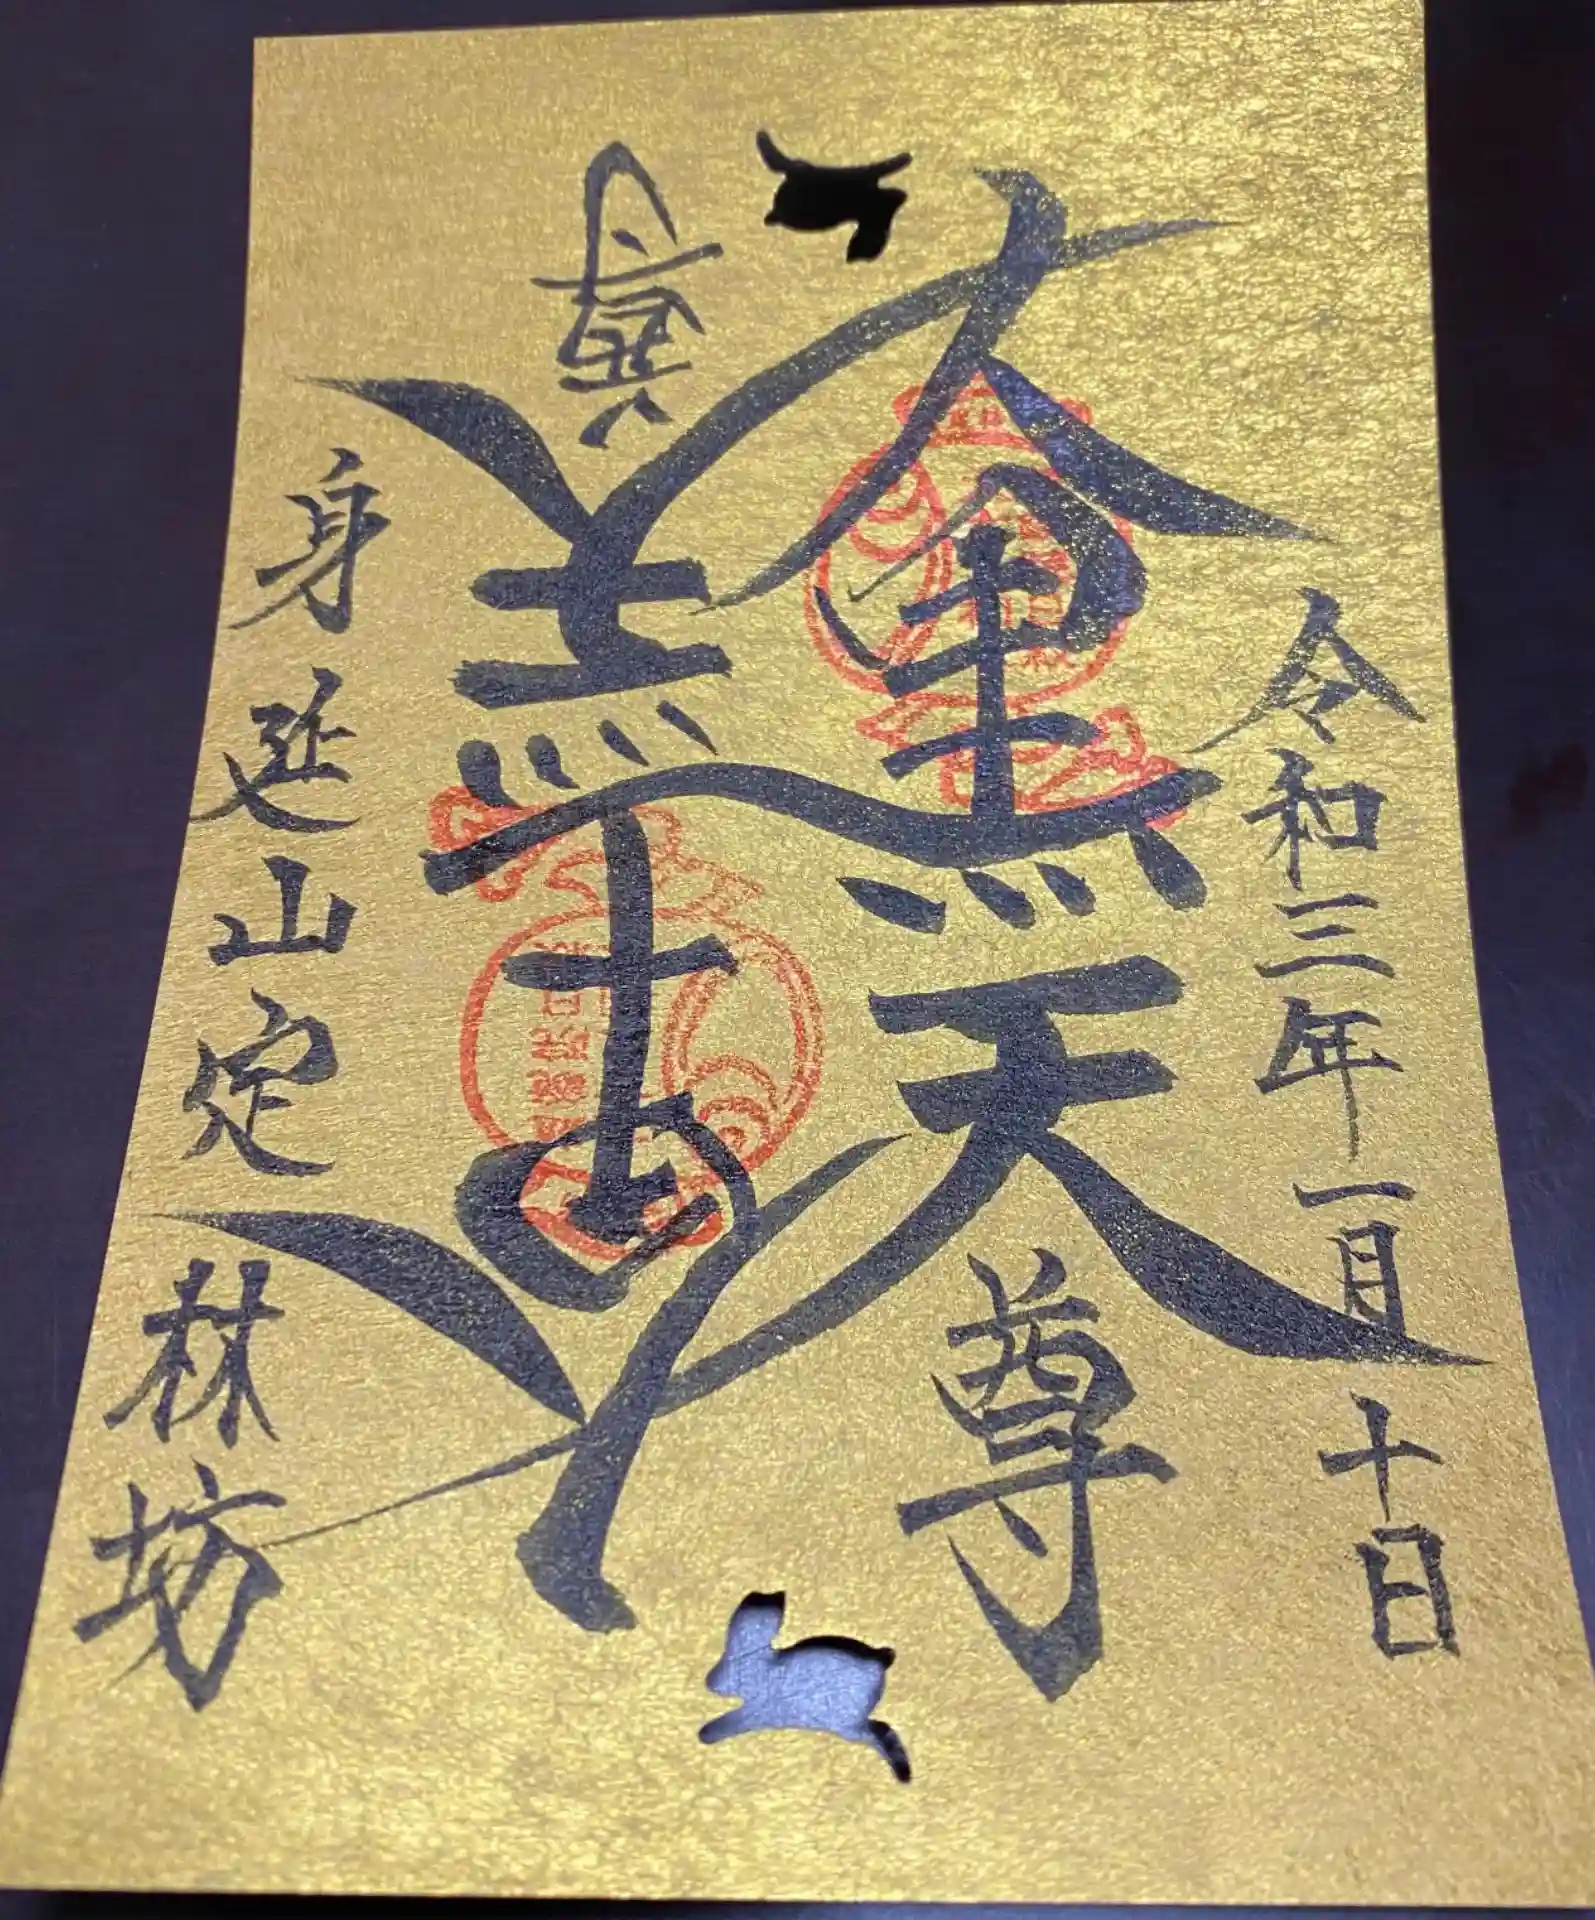 令和三年一月十日
大黒天尊
大黒天尊
身延山定林坊